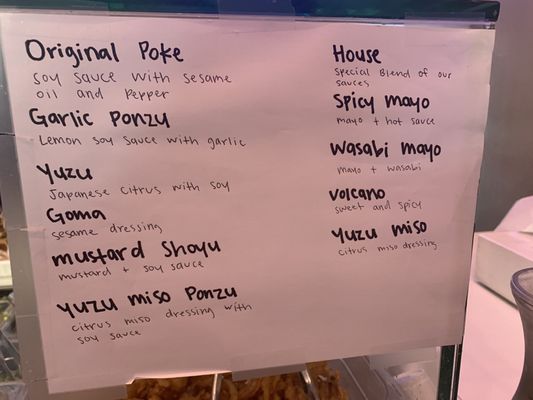 Original Poke
soy sauce with sesame
oil and pepper
Garlic Ponzu
Lemon soy sauce with garlic
Yuzu
Japanese citrus with soy
Goma
sesame dressing
mustard Shoyu
mustard + soy sauce
Yuzu miso Ponzu
citrus miso dressing with
soy sauce
House
special blend of our
sauces
Spicy mayo
mayo + hot sauce
Wasabi mayo
mayo + wasabi
volcano
sweet and spicy
Yuzu miso
citrus miso dressing